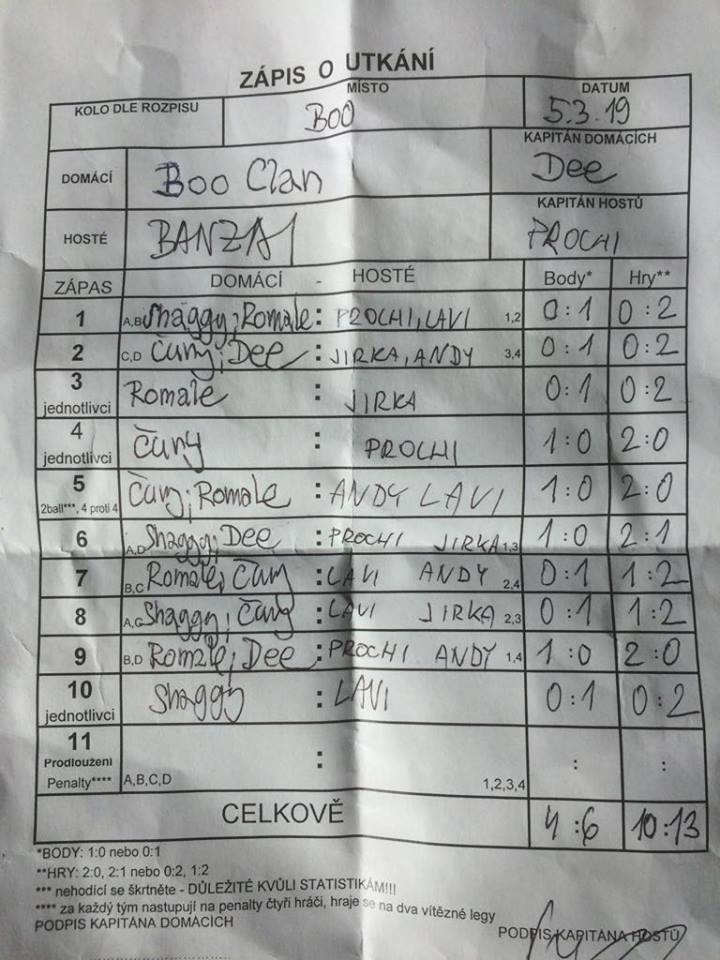 ZÁPIS O UTKÁNÍ
KOLO DLE ROZPISU
MÍSTO
BOO
DATUM
5.3.19
DOMÁCÍ
Boo Clan
KAPITÁN DOMÁCÍCH
Dee
HOSTÉ
BANZAI
KAPITÁN HOSTŮ
PROCHI
ZÁPAS DOMÁCÍ - HOSTÉ Body* Hry**
1 A,B Shaggy, Romale : PROCHI, LAVI 1,2 0:1 0:2
2 C,D Čury, Dee : JIRKA, ANDY 3,4 0:1 0:2
3 jednotlivci Romale : JIRKA 0:1 0:2
4 jednotlivci Čury : PROCHI 1:0 2:0
5 2ball***, 4 proti 4 Čury, Romale : ANDY LAVI 1:0 2:0
6 A,D Shaggy, Dee : PROCHI JIRKA 1,3 1:0 2:1
7 B,C Romale, Čury : LAVI ANDY 2,4 0:1 1:2
8 A,C Shaggy, Čury : LAVI JIRKA 2,3 0:1 1:2
9 B,D Romale, Dee : PROCHI ANDY 1,4 1:0 2:0
10 jednotlivci Shaggy : LAVI 0:1 0:2
11 Prodloužení Penalty**** A,B,C,D : 1,2,3,4 : :
CELKOVĚ 4:6 10:13
*BODY: 1:0 nebo 0:1
**HRY: 2:0, 2:1 nebo 0:2, 1:2
*** nehodící se škrtněte - DŮLEŽITÉ KVŮLI STATISTIKÁM!!!
**** za každý tým nastupují na penalty čtyři hráči, hraje se na dva vítězné legy
PODPIS KAPITÁNA DOMÁCÍCH
PODPIS KAPITÁNA HOSTŮ